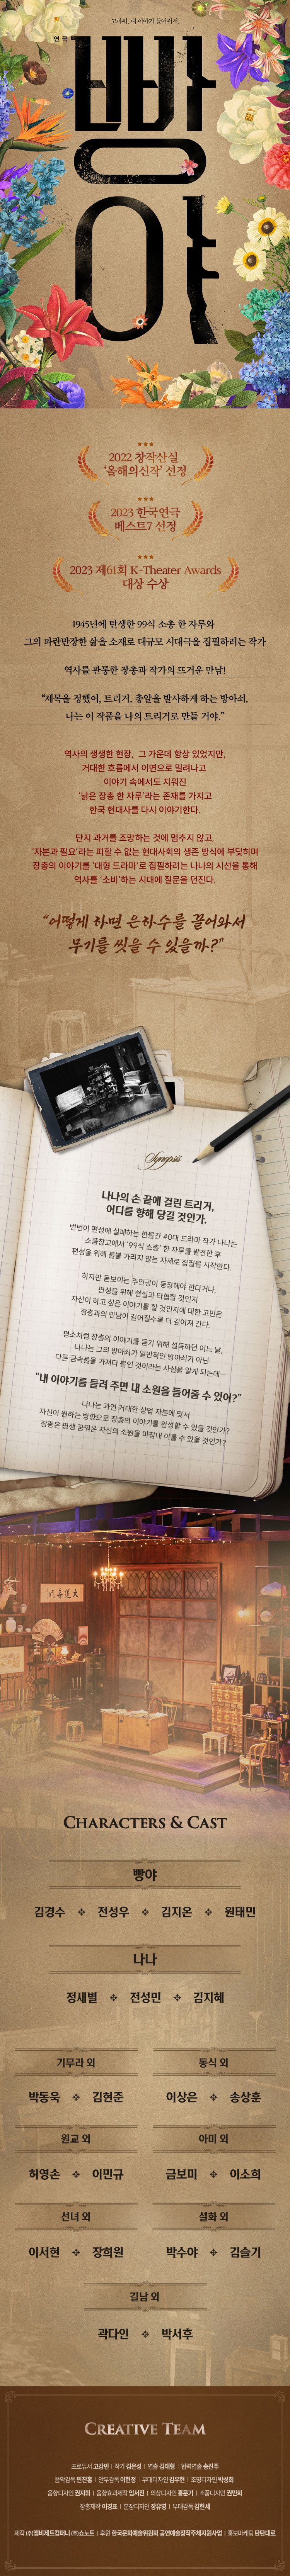 고마워. 내 이야기 들어줘서.
연극
빵
야
2022 창작산실
‘올해의신작’ 선정
2023 한국연극
베스트7 선정
2023 제61회 K-Theater Awards
대상 수상
1945년에 탄생한 99식 소총 한 자루와
그의 파란만장한 삶을 소재로 대규모 시대극을 집필하려는 작가
역사를 관통한 장총과 작가의 뜨거운 만남!
“제목을 정했어, 트리거. 총알을 발사하게 하는 방아쇠.
나는 이 작품을 나의 트리거로 만들 거야.”
역사의 생생한 현장, 그 가운데 항상 있었지만,
거대한 흐름에서 이면으로 밀려나고
이야기 속에서도 지워진
‘낡은 장총 한 자루’라는 존재를 가지고
한국 현대사를 다시 이야기한다.
단지 과거를 조망하는 것에 멈추지 않고,
‘자본과 필요’라는 피할 수 없는 현대사회의 생존 방식에 부딪히며
장총의 이야기를 ‘대형 드라마’로 집필하려는 나나의 시선을 통해
역사를 ‘소비’하는 시대에 질문을 던진다.
“어떻게 하면 은하수를 끌어와서
무기를 씻을 수 있을까?”
Synopsis
나나의 손 끝에 걸린 트리거,
어디를 향해 당길 것인가.
번번이 편성에 실패하는 한물간 40대 드라마 작가 나나는
소품창고에서 ‘99식 소총’ 한 자루를 발견한 후
편성을 위해 물불 가리지 않는 자세로 집필을 시작한다.
하지만 돋보이는 주인공이 등장해야 한다거나,
편성을 위해 현실과 타협할 것인지
자신이 하고 싶은 이야기를 할 것인지에 대한 고민은
장총과의 만남이 길어질수록 더 깊어져 간다.
평소처럼 장총의 이야기를 듣기 위해 설득하던 어느 날,
나나는 그의 방아쇠가 일반적인 방아쇠가 아닌
다른 금속물을 가져다 붙인 것이라는 사실을 알게 되는데…
“내 이야기를 들려 주면 내 소원을 들어줄 수 있어?”
나나는 과연 거대한 상업 자본에 맞서
자신이 원하는 방향으로 장총의 이야기를 완성할 수 있을 것인가?
장총은 평생 꿈꿔온 자신의 소원을 마침내 이룰 수 있을 것인가?
Characters & Cast
빵야
김경수 전성우 김지온 원태민
나나
정새별 전성민 김지혜
기무라 외
박동욱 김현준
동식 외
이상은 송상훈
원교 외
허영손 이민규
아미 외
금보미 이소희
선녀 외
이서현 장희원
설화 외
박수야 김슬기
길남 외
곽다인 박서후
Creative Team
프로듀서 고강민 | 작가 김은성 | 연출 김태형 | 협력연출 송진주
음악감독 민찬홍 | 안무감독 이현정 | 무대디자인 김우현 | 조명디자인 박성희
음향디자인 권지휘 | 음향효과제작 임서진 | 의상디자인 홍문기 | 소품디자인 권민희
장총제작 이경표 | 분장디자인 장유영 | 무대감독 김현세
제작 (주)엠비제트컴퍼니 (주)쇼노트 | 후원 한국문화예술위원회 공연예술창작주체지원사업 | 홍보마케팅 탄탄대로